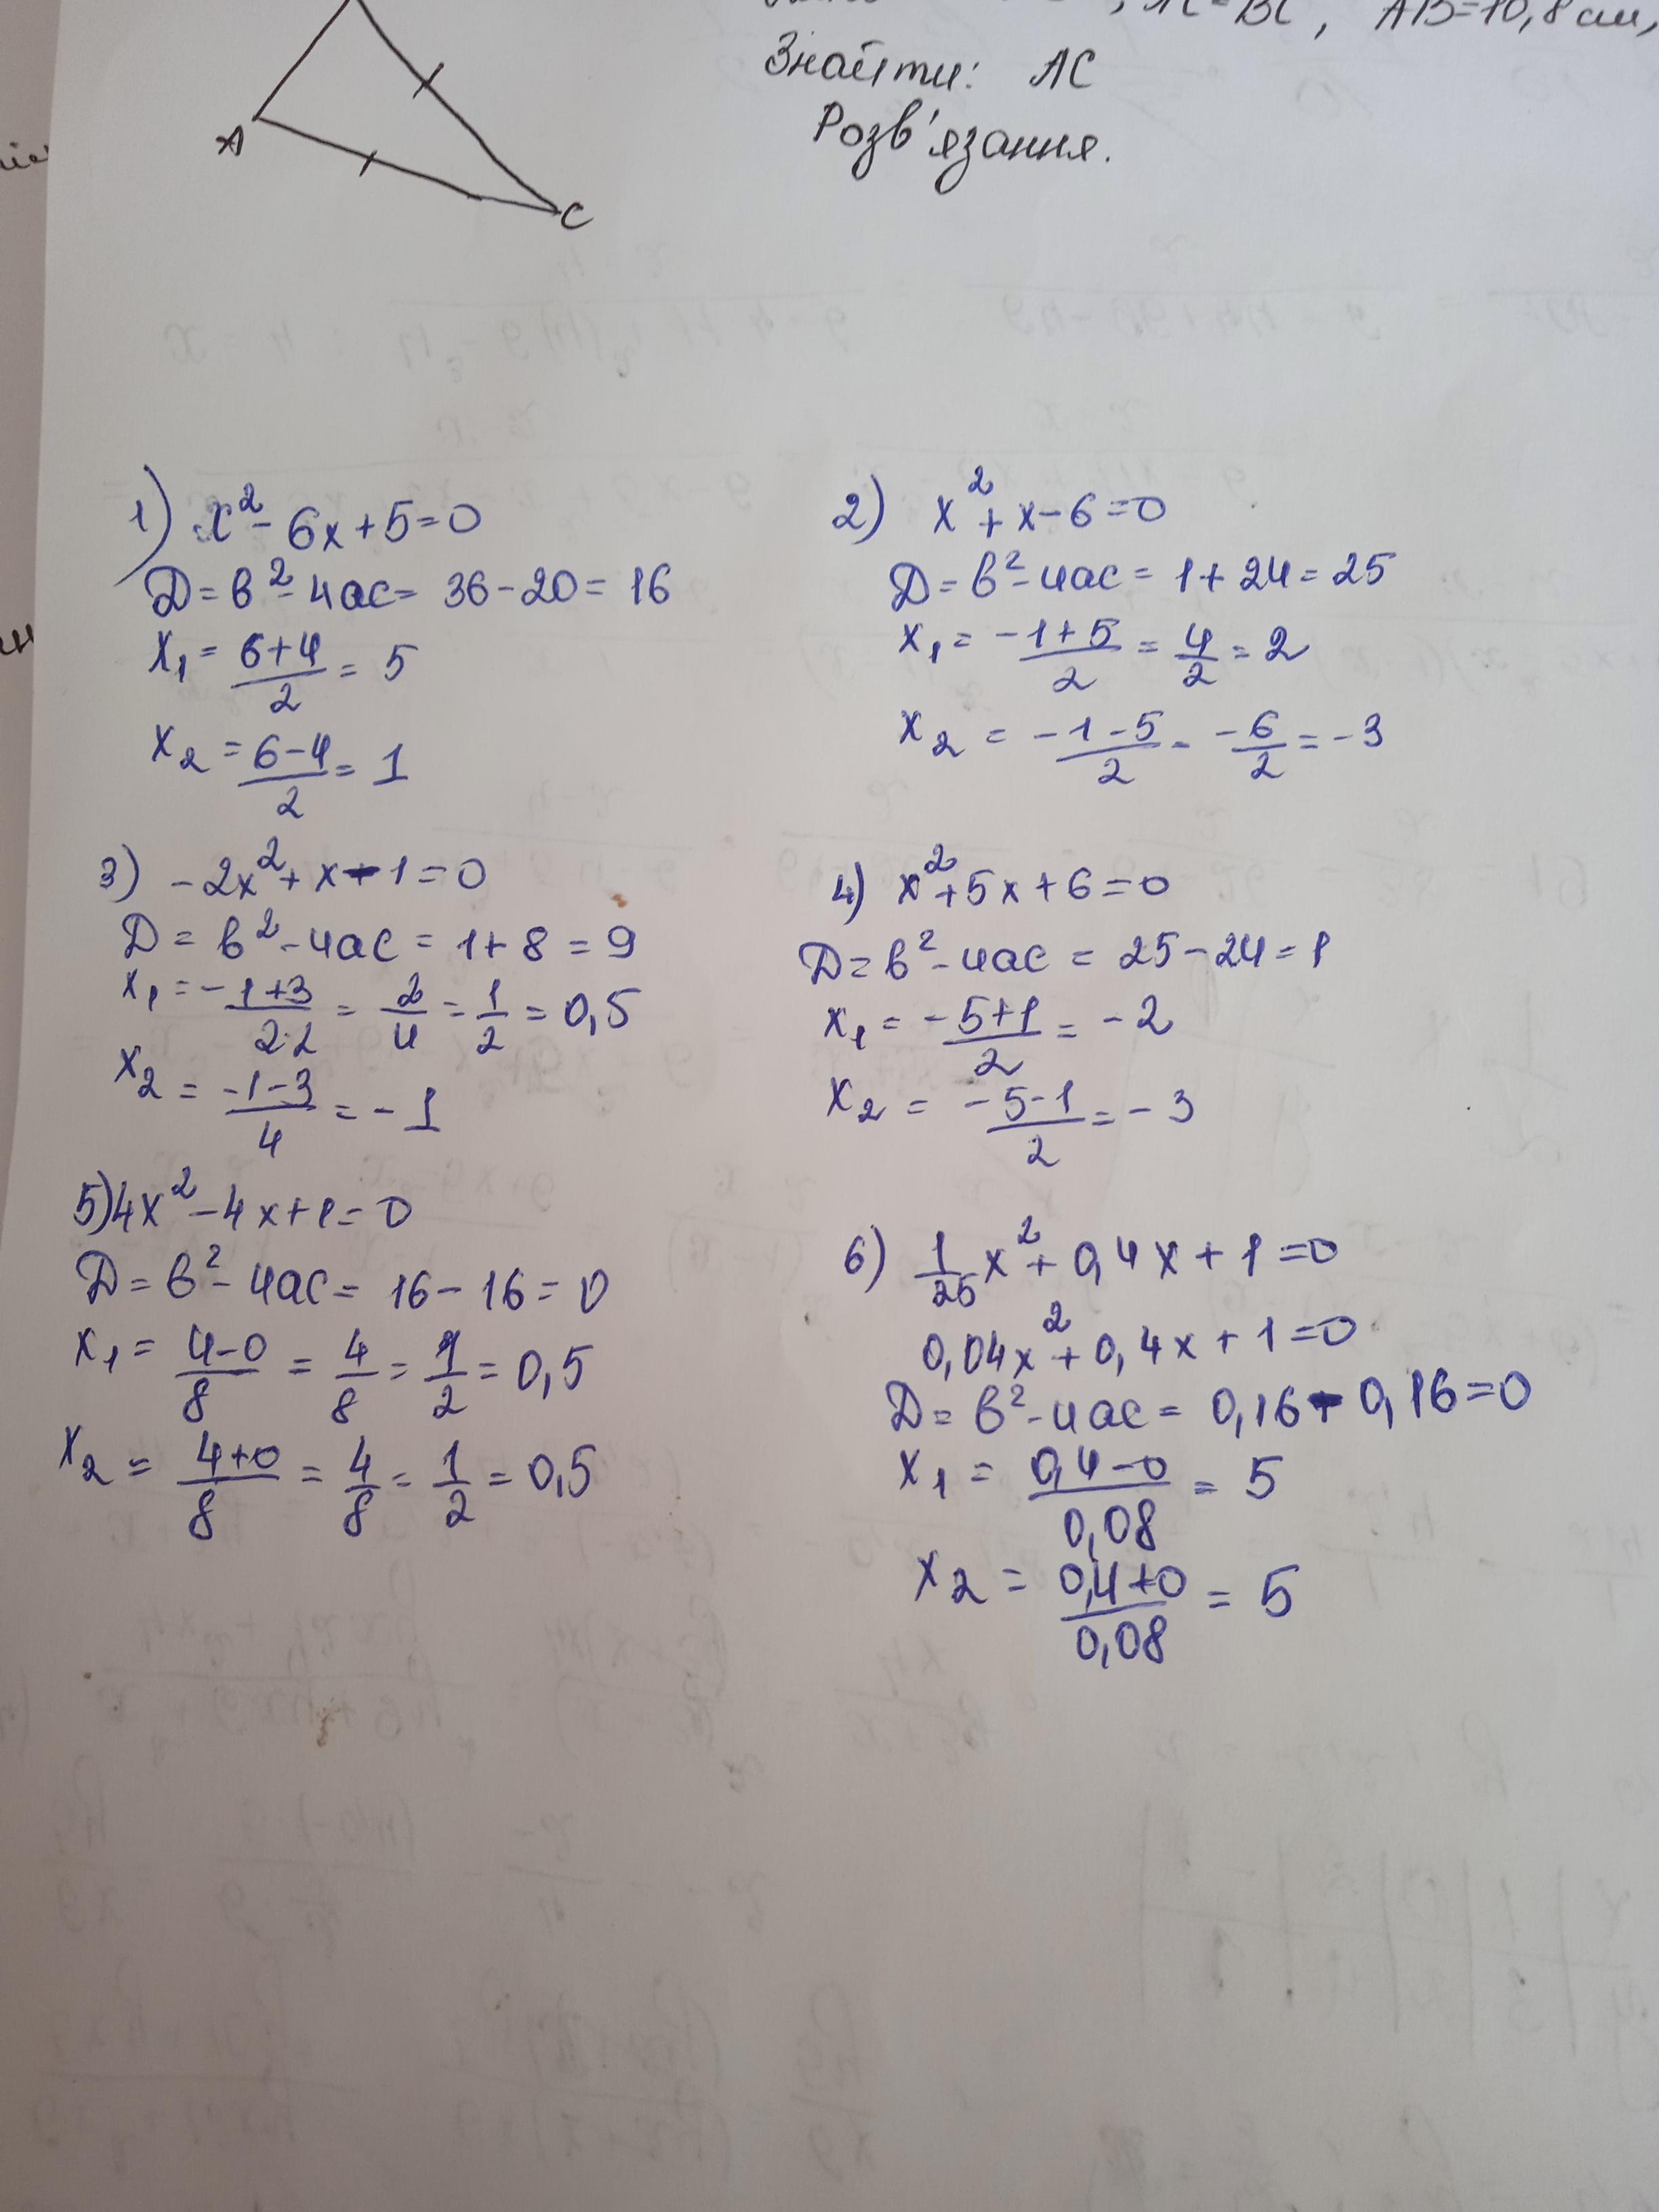 , AC=BC, AB=10,8см,
Знайти: АС
Розв'язання.
A
C
1) x²-6x+5=0
Д=в²-4ас= 36-20=16
x₁=(6+4)/2=5
x₂=(6-4)/2=1
2) x²+x-6=0
Д=в²-4ас=1+24=25
x₁=(-1+5)/2=4/2=2
x₂=(-1-5)/2=-6/2=-3
3) -2x²+x-1=0
Д=в²-4ас=1+8=9
x₁=(-1+3)/(2·2)=2/4=1/2=0,5
x₂=(-1-3)/4=-1
4) x²+5x+6=0
Д=в²-4ас=25-24=1
x₁=(-5+1)/2=-2
x₂=(-5-1)/2=-3
5) 4x²-4x+1=0
Д=в²-4ас=16-16=0
x₁=(4-0)/8=4/8=1/2=0,5
x₂=(4+0)/8=4/8=1/2=0,5
6) 1/25x²+0,4x+1=0
0,04x²+0,4x+1=0
Д=в²-4ас=0,16-0,16=0
x₁=(0,4-0)/0,08=5
x₂=(0,4+0)/0,08=5